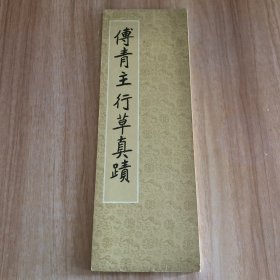 傅青主行草真蹟